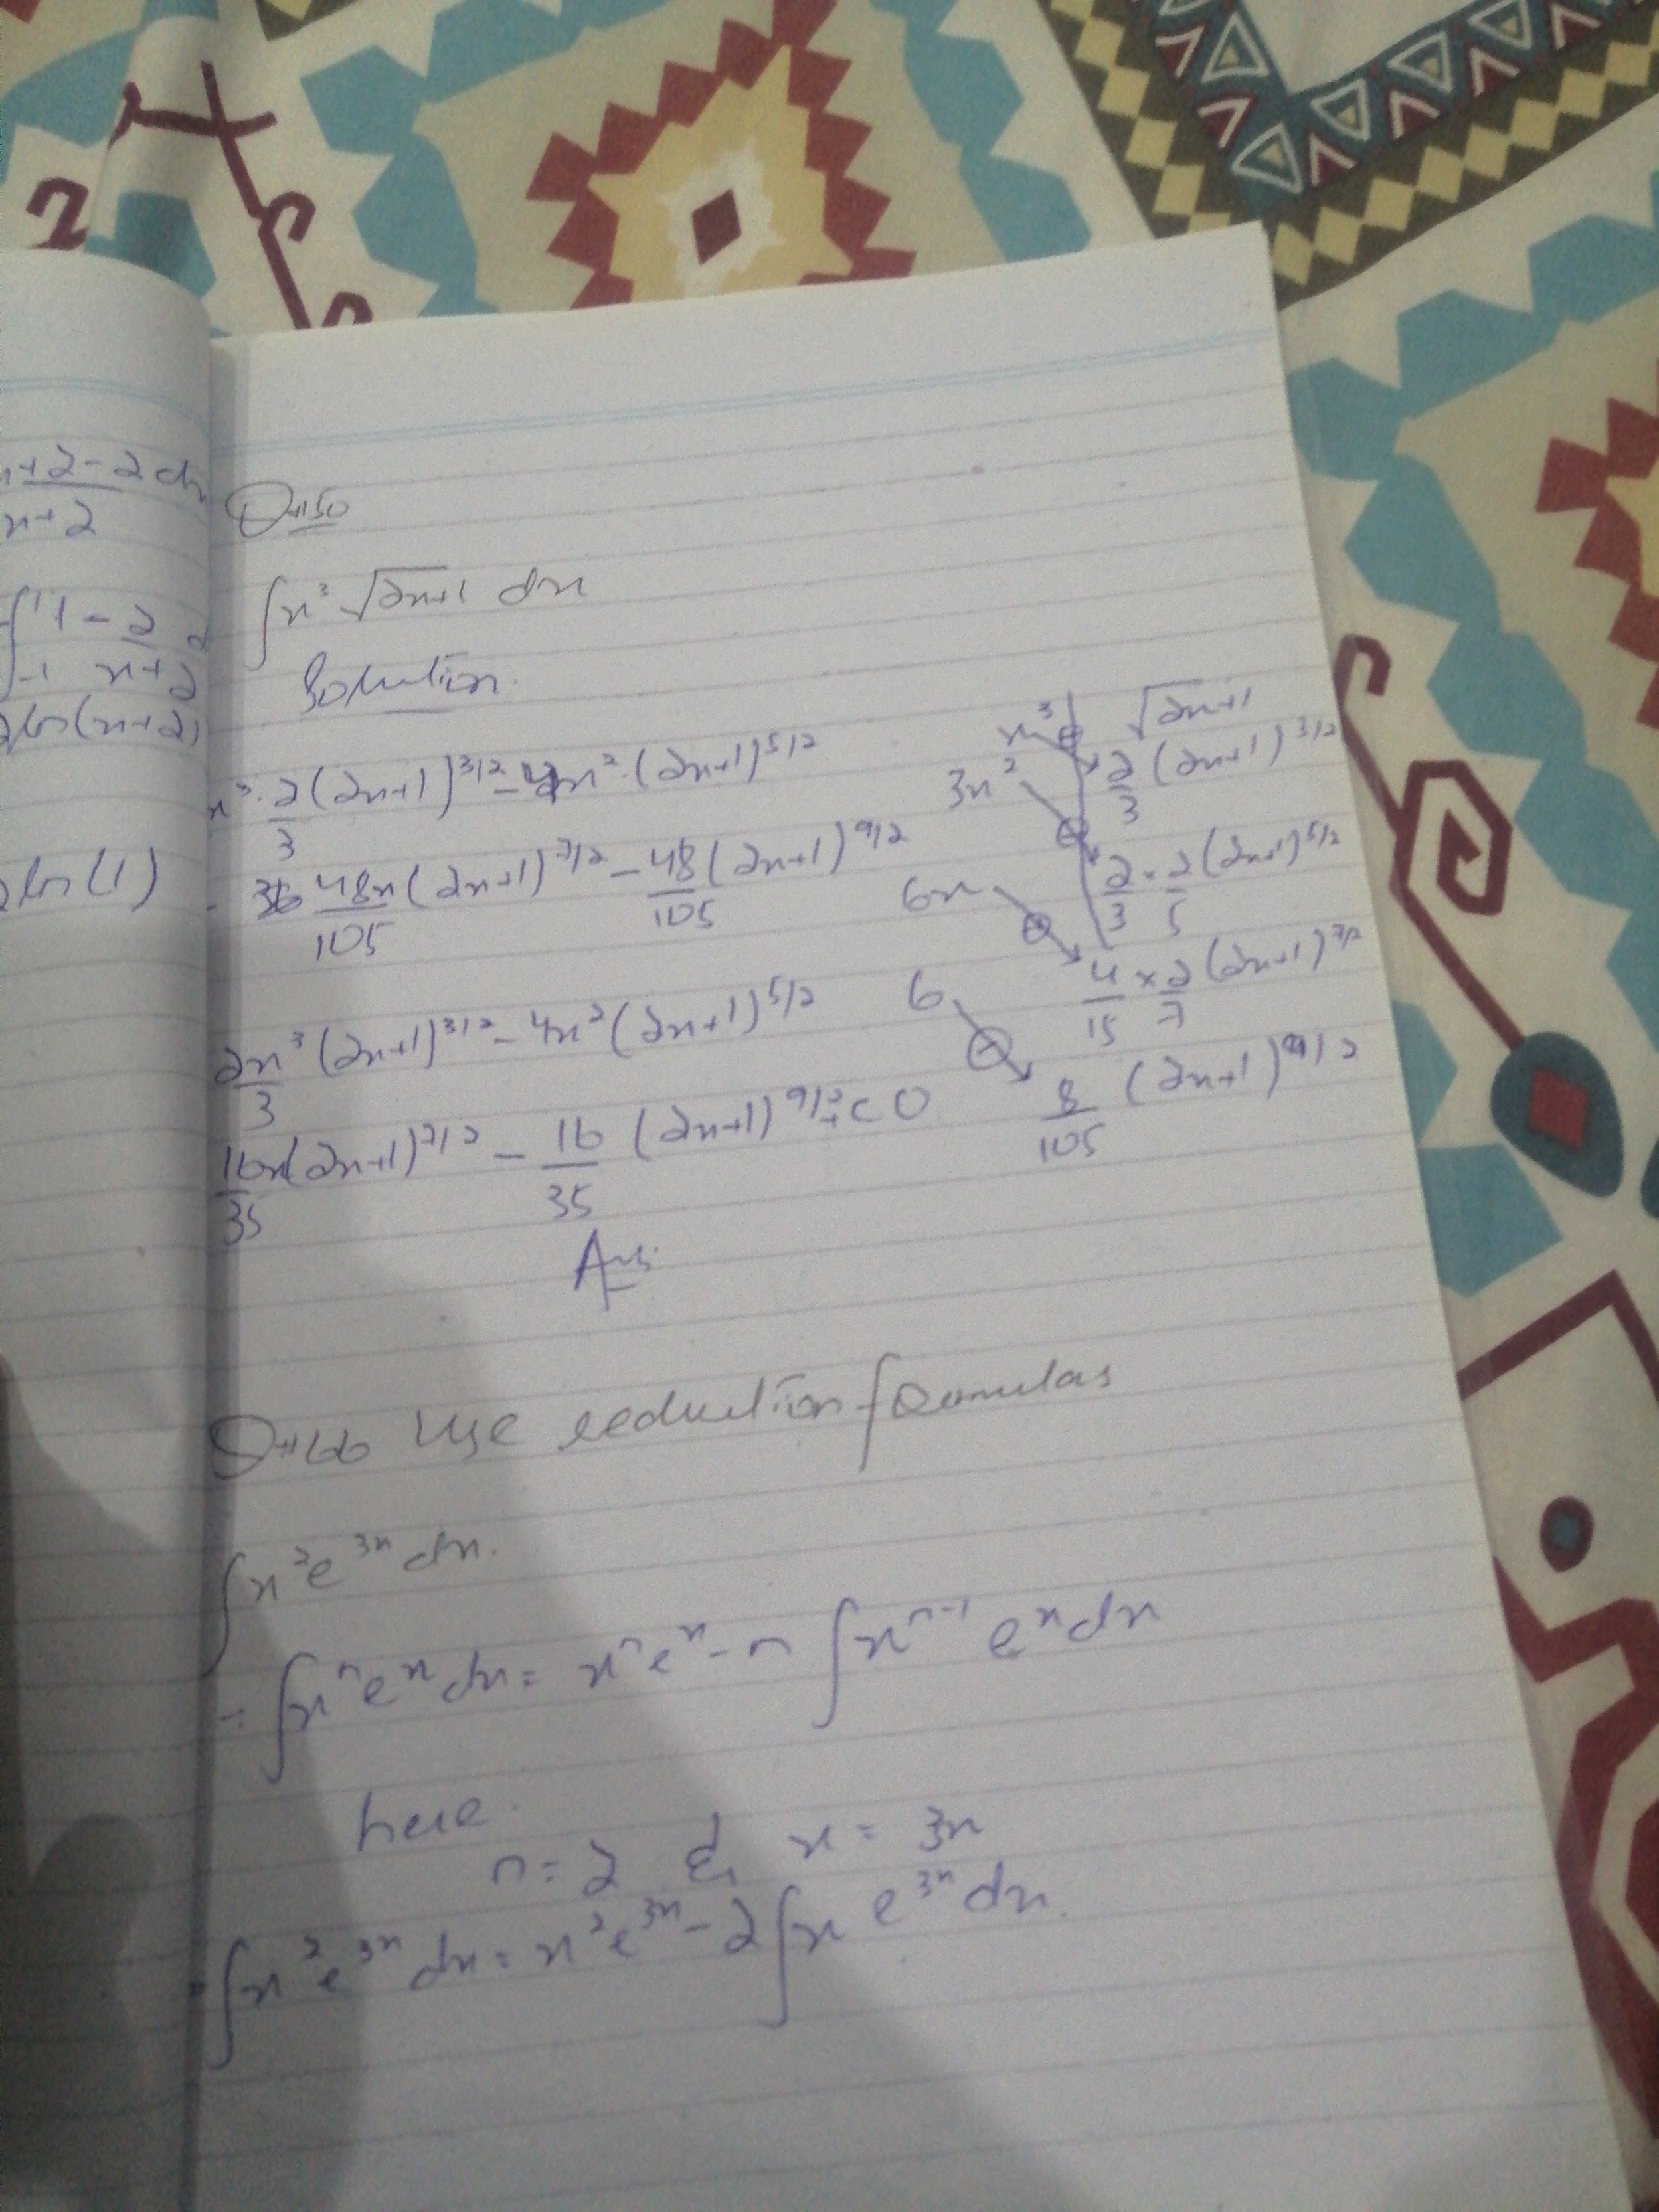 x+2-2 dx
x+2
∫ 1 1 - 2
-1 x+2
2ln(x+2)
2ln(1)
Q#50
∫x³ √2x+1 dx
Solution.
x³ · 2/3 (2x+1)^3/2 - 4x² · (2x+1)^5/2
48x/105 (2x+1)^7/2 - 48/105 (2x+1)^9/2
2x³/3 (2x+1)^3/2 - 4x² (2x+1)^5/2
16x/35 (2x+1)^7/2 - 16/35 (2x+1)^9/2 + C
Ans.
x³ ⊕ √2x+1
3x² 2/3 (2x+1)^3/2
6x 2/3 × 2/5 (2x+1)^5/2
6 4/15 × 2/7 (2x+1)^7/2
8/105 (2x+1)^9/2
Q#66 Use reduction formulas
∫x²e^3x dx.
= ∫x^n e^x dx = x^n e^x - n ∫x^n-1 e^x dx
here.
n = 2 & x = 3x
= ∫x²e^3x dx = x²e^3x - 2∫x e^3x dx.